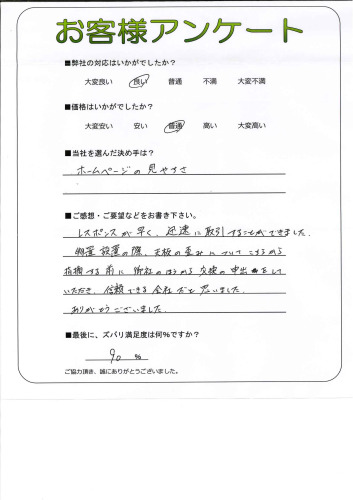 お客様アンケート
■弊社の対応はいかがでしたか？
大変良い 良い 普通 不満 大変不満
■価格はいかがでしたか？
大変安い 安い 普通 高い 大変高い
■当社を選んだ決め手は？
ホームページの見やすさ
■ご感想・ご要望などをお書き下さい。
レスポンスが早く、迅速に取引することができました。
設置の際、天板の歪みについてこちらから
指摘する前に御社のほうから交換の申出をして
いただき、信頼できる会社だと思いました。
ありがとうございました。
■最後に、ズバリ満足度は何％ですか？
90 %
ご協力頂き、誠にありがとうございました。